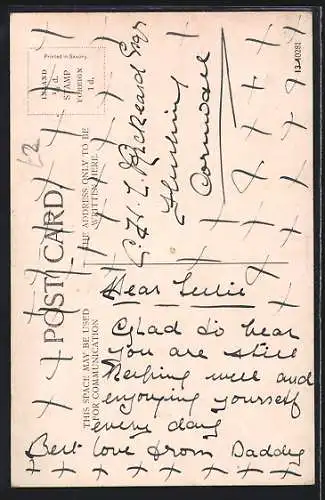 POST CARD
THIS SPACE MAY BE USED
FOR COMMUNICATION
THE ADDRESS ONLY TO BE
WRITTEN HERE.
Printed in Saxony.
INLAND
½d.
STAMP
FOREIGN
1d.
13-40281
C. H. L. Esqr
Flushing
Cornwall
Dear Leslie
Glad to hear
you are still
keeping well and
enjoying yourself
every day
Best love from Daddy